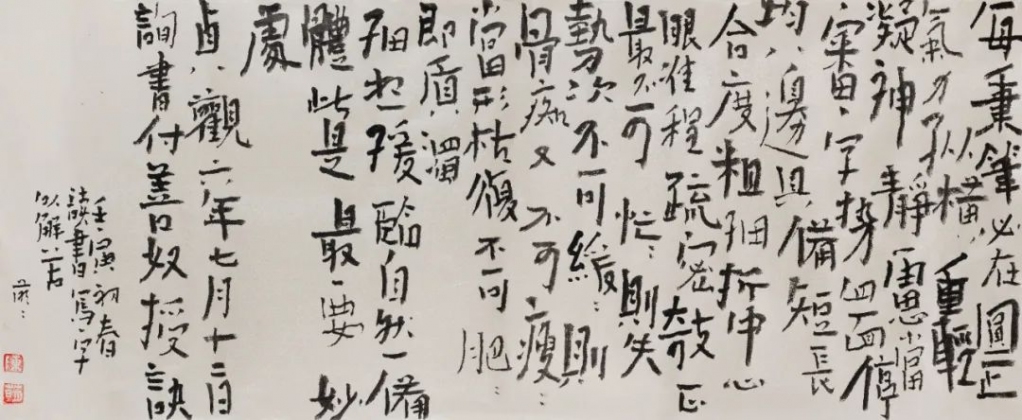 每秉筆必在圓正
氣力縱橫重輕
凝神靜慮當
審字勢四面停
均八邊具備短長
合度粗細折中心
眼准程疏密欹正
最不可忙〻則失
勢次不可緩〻則
骨痴又不可瘦〻
當形枯復不可肥〻
即質濁
細想緩臨自然備
體此是最要妙
處
貞觀六年七月十二日
詢書付善奴授訣
壬寅初春
書寫字
以解